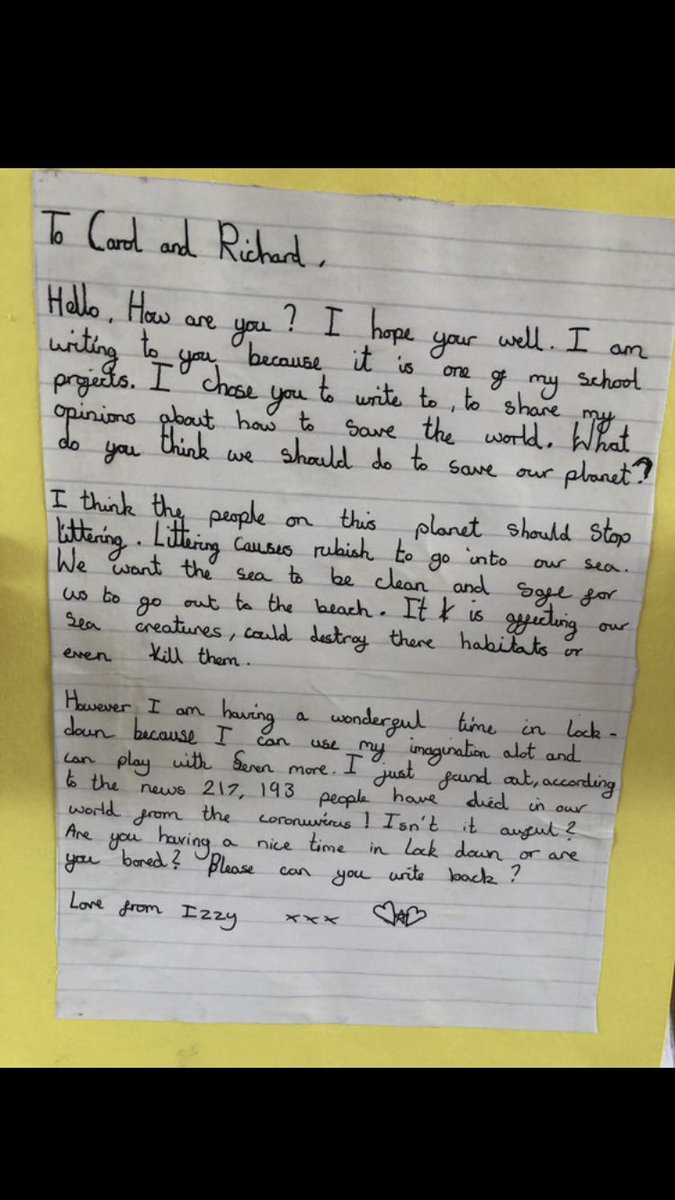 To Carol and Richard,
Hello, How are you? I hope your well. I am
writing to you because it is one of my school
projects. I chose you to write to, to share my
opinions about how to save the world. What
do you think we should do to save our planet?
I think the people on this planet should stop
littering. Littering causes rubish to go into our sea.
We want the sea to be clean and safe for
us to go out to the beach. It is affecting our
sea creatures, could destroy there habitats or
even kill them.
However I am having a wonderful time in lock-
down because I can use my imagination alot and
can play with Seren more. I just found out, according
to the news 217, 193 people have died in our
world from the coronuvirus! Isn't it awful?
Are you having a nice time in lock down or are
you bored? Please can you write back?
Love from Izzy xxx